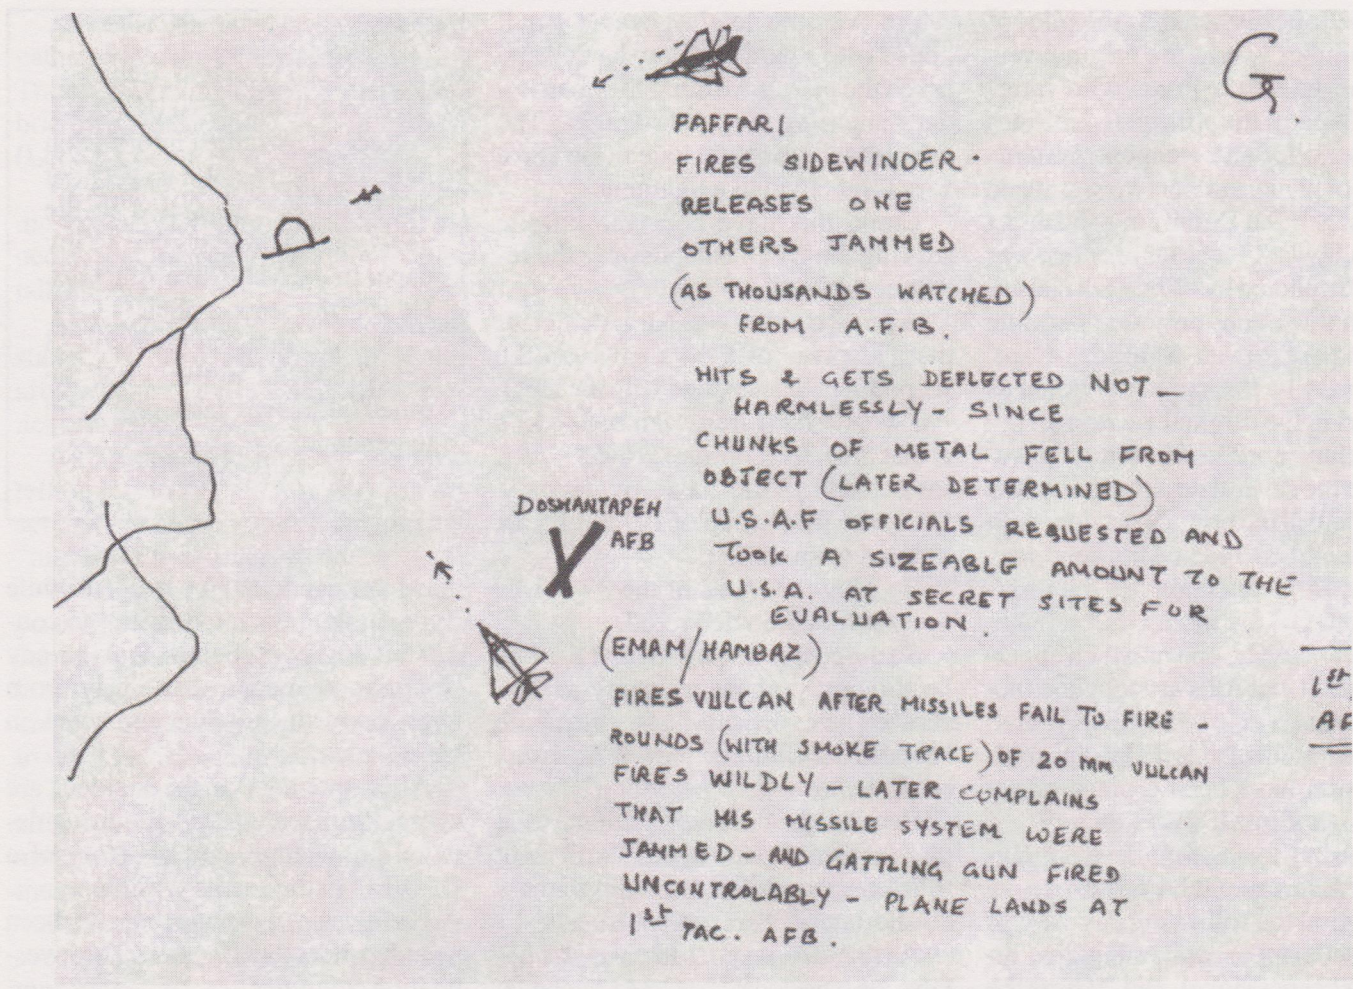 G.
FAFFARI
FIRES SIDEWINDER.
RELEASES ONE
OTHERS JAMMED
(AS THOUSANDS WATCHED)
FROM A.F.B.
HITS & GETS DEFLECTED NOT-
HARMLESSLY - SINCE
CHUNKS OF METAL FELL FROM
OBJECT (LATER DETERMINED)
U.S.A.F OFFICIALS REQUESTED AND
TOOK A SIZEABLE AMOUNT TO THE
U.S.A. AT SECRET SITES FOR
EVALUATION.
DOSHANTAPEH
AFB
(EMAM/HAMBAZ)
FIRES VULCAN AFTER MISSILES FAIL TO FIRE -
ROUNDS (WITH SMOKE TRACE) OF 20 MM VULCAN
FIRES WILDLY - LATER COMPLAINS
THAT HIS MISSILE SYSTEM WERE
JAMMED - AND GATTLING GUN FIRED
UNCONTROLABLY - PLANE LANDS AT
1st TAC. AFB.
1st
AF